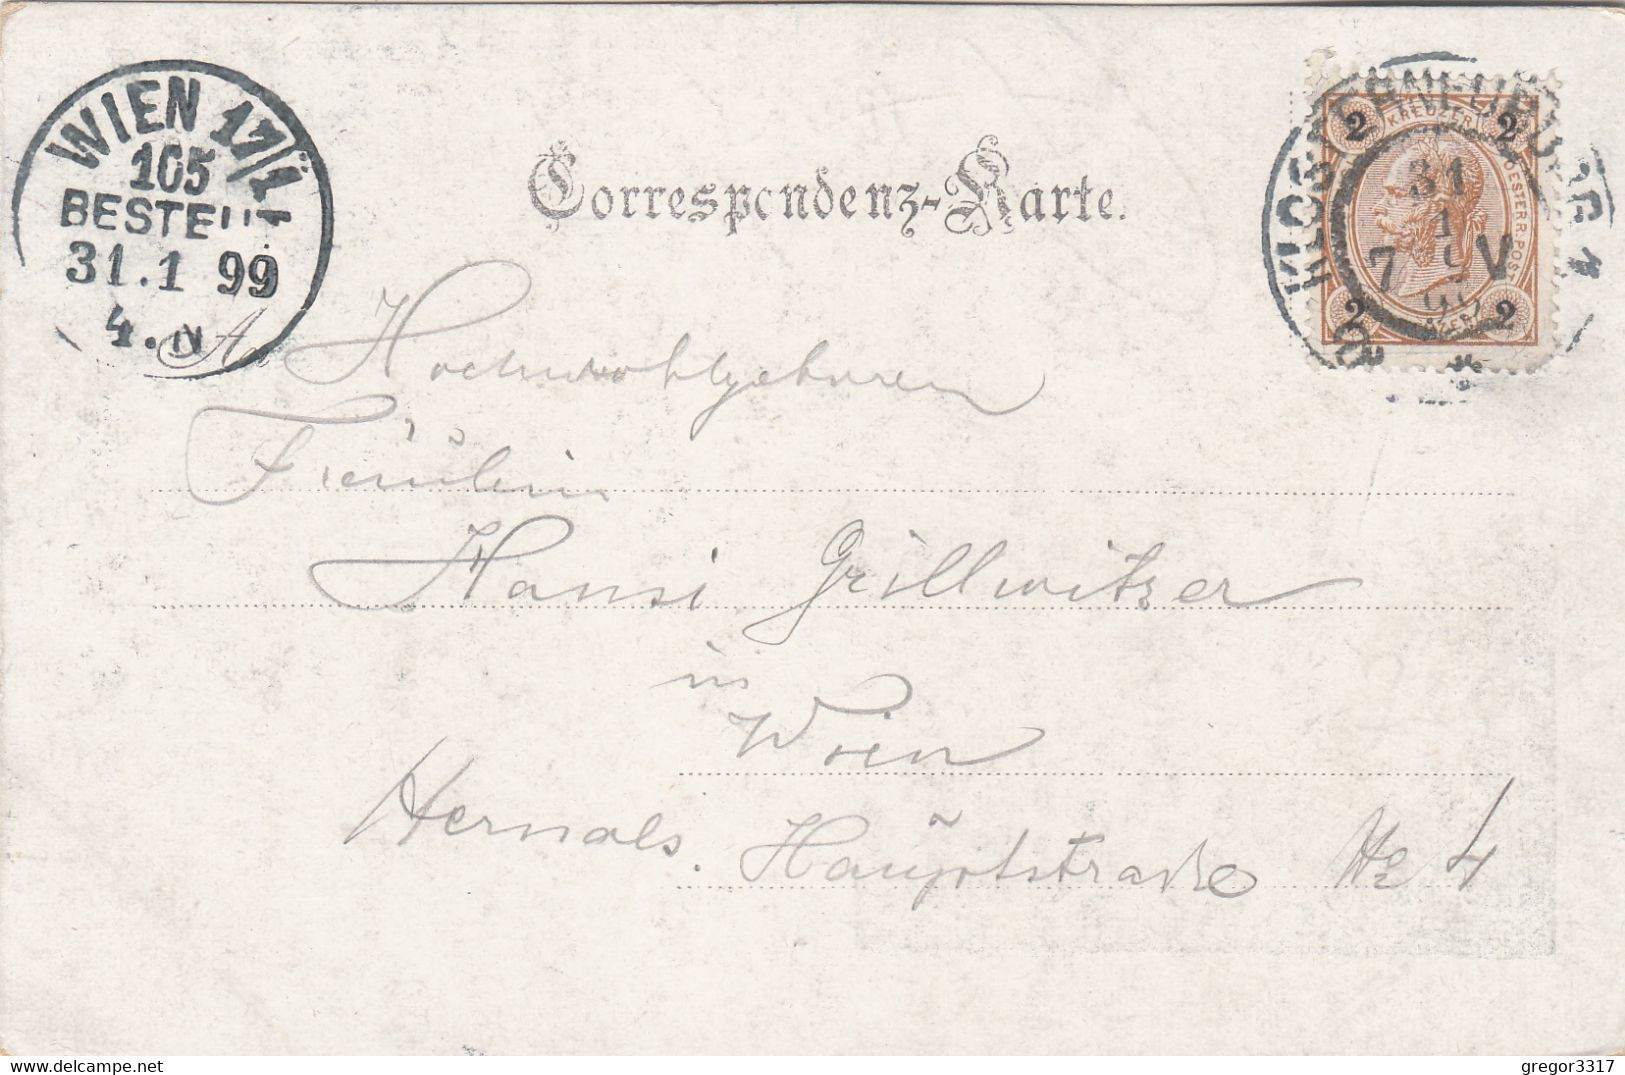 WIEN 17/1
105
BESTELLT
31.1 99
4. N
Correspondenz-Karte.
KLOSTERNEUBURG 1
31
1
7 9 V
99
2 KREUZER 2
OESTERR. POST
2 2
An
Hochwohlgeboren
Fräulein
Hansi Grillwitzer
in
Wien
Hernals. Hauptstrasse No 4
Delcampe.net
gregor3317